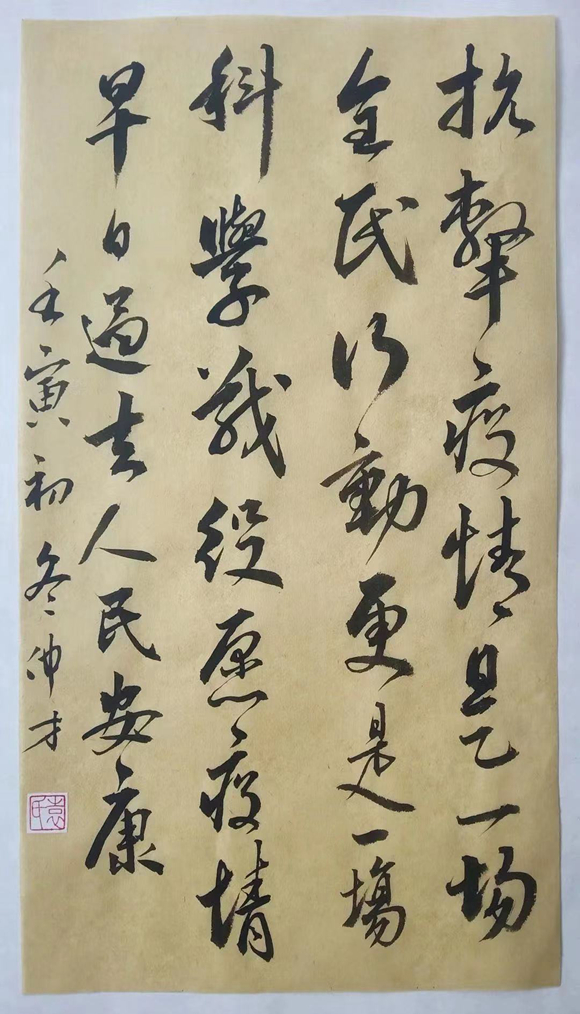 抗擊疫情是一场
全民行動更是一場
科學戰役愿疫情
早日過去人民安康
壬寅初冬仲才